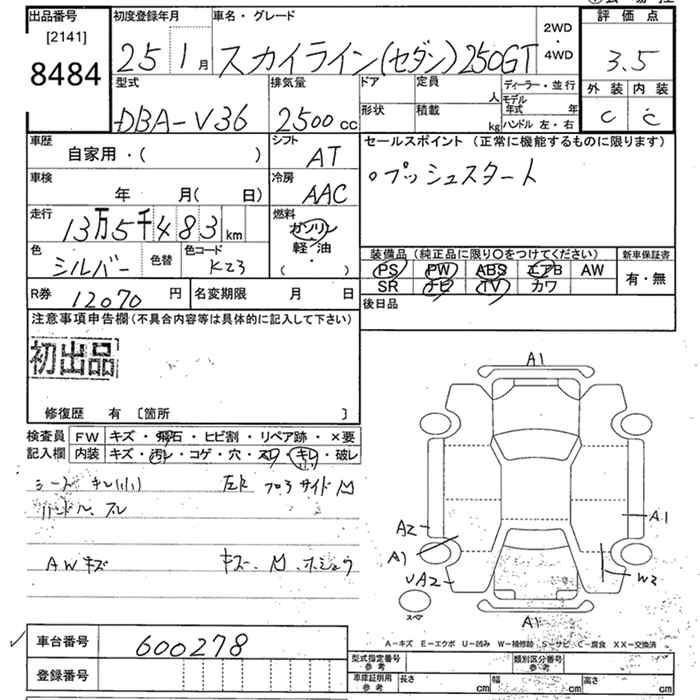 出品番号
[2141]
8484
初度登録年月
25 1月
車名・グレード
スカイライン(セダン)250GT
2WD
・
4WD
評価点
3.5
型式
DBA-V36
排気量
2500cc
ドア
定員
人
形状
積載
kg
ディーラー・並行
モデル年式 年
ハンドル 左・右
外装 内装
C C
車歴
自家用・( )
シフト
AT
セールスポイント (正常に機能するものに限ります)
○プッシュスタート
車検
年 月( 日)
冷房
AAC
走行
13万5千483km
燃料
ガソリン
軽・油
・
( )
色
シルバー
色替
色コード
K23
装備品 (純正品に限り○をつけてください)
PS PW ABS エアB AW
SR ナビ TV カワ
新車保証書
有・無
R券 12070円
名変期限 月 日
後日品
注意事項申告欄(不具合内容等は具体的に記入して下さい)
初出品
修復歴 有 [箇所 ]
検査員
記入欄
FW キズ・飛石・ヒビ割・リペア跡・×要
内装 キズ・汚レ・コゲ・穴・スレ・キレ・破レ
ハンドル スレ
AWキズ
A1
A2
A1
UA2
A1
W3
A1
スペア
車台番号 600278
登録番号
A−キズ E−エクボ U−凹み W−補修跡 S−サビ C−腐食 XX−交換済
型式指定番号
参考
類別区分番号
参考
車庫証明用
参考
長さ cm
幅 cm
高さ cm